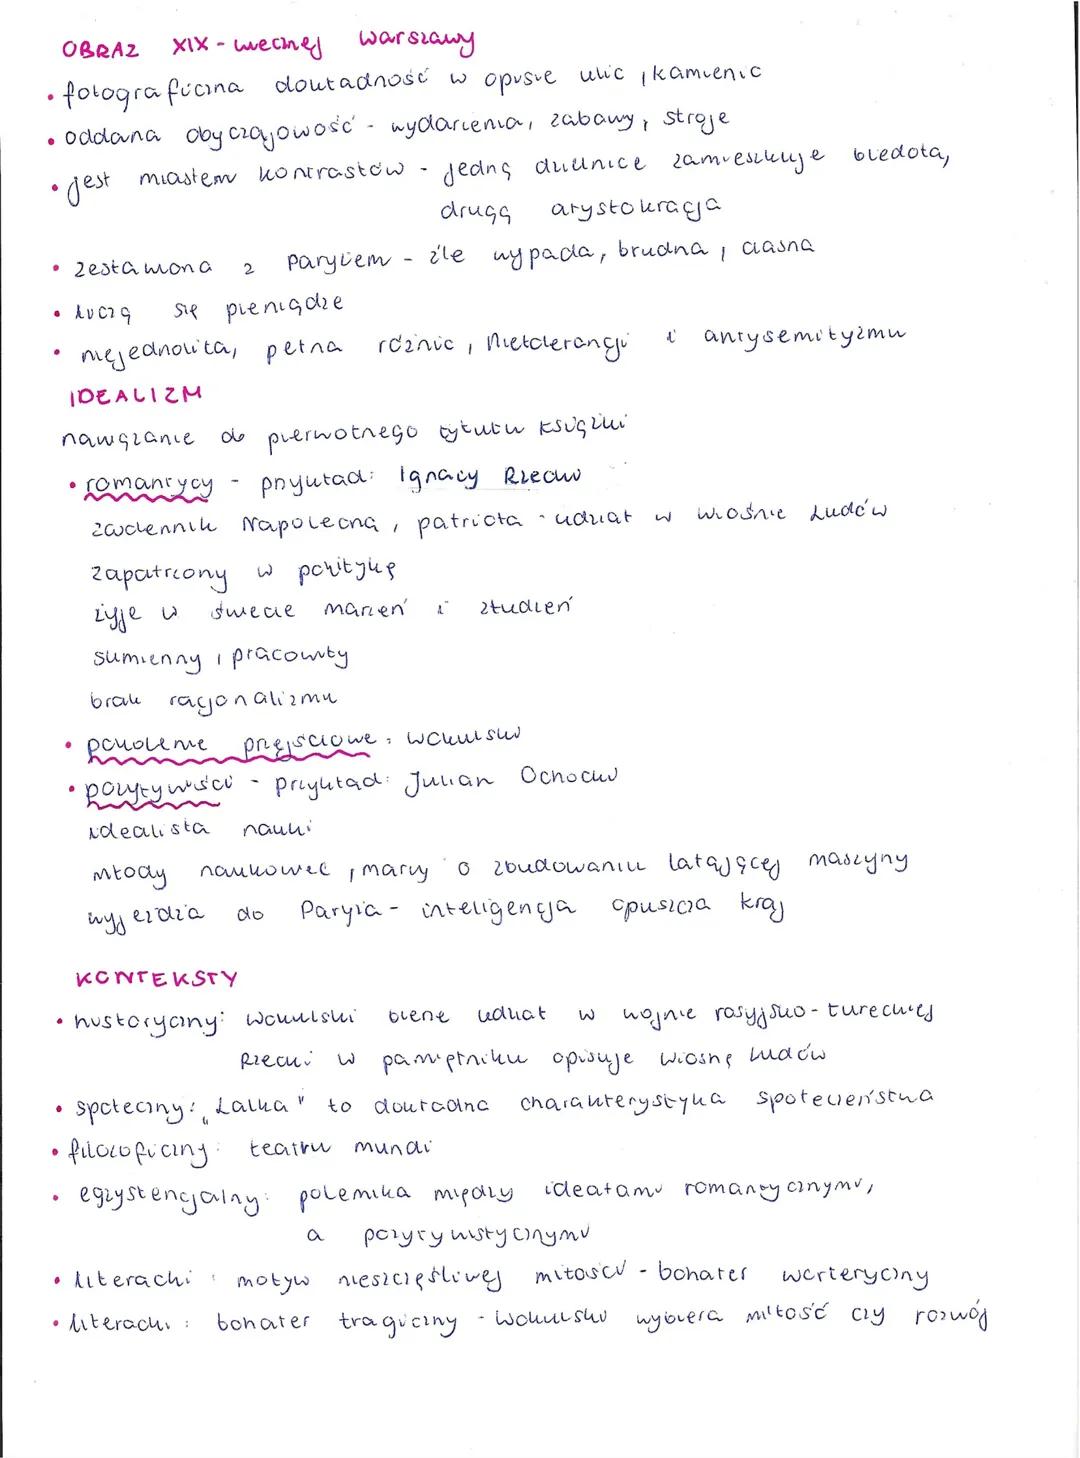 OBRAZ XIX-wiecznej Warszawy
• fotograficzna dokładność w opisie ulic, kamienic
• oddana obyczajowość - wydarzenia, zabawy, stroje
• jest miastem kontrastów - jedną dzielnice zamieszkuje biedota,
drugą arystokracja
• zestawiona z Paryżem - źle wypada, brudna, ciasna
• liczą się pieniądze
• niejednolita, pełna różnic, nietolerancji i antysemityzmu
IDEALIZM
nawiązanie do pierwotnego tytułu książki
• romantycy - przykład: Ignacy Rzecki
zwolennik Napoleona, patriota - udział w wiośnie Ludów
zapatrzony w politykę
żyje w świecie marzeń i złudzeń
sumienny, pracowity
brak racjonalizmu
• pokolenie przejściowe: Wokulski
• pozytywiści - przykład: Julian Ochocki
idealista nauki
młody naukowiec, marzy o zbudowaniu latającej maszyny
wyjeżdża do Paryża - inteligencja opuszcza kraj
KONTEKSTY
• historyczny: Wokulski bierze udział w wojnie rosyjsko-tureckiej
Rzecki w pamiętniku opisuje wiosnę Ludów
• społeczny: „Lalka" to dokładna charakterystyka społeczeństwa
• filozoficzny: teatru mundi
• egzystencjalny: polemika między ideałami romantycznymi,
a pozytywistycznymi
• literacki: motyw nieszczęśliwej miłości - bohater werteryczny
• literacki: bohater tragiczny - Wokulski wybiera miłość czy rozwój